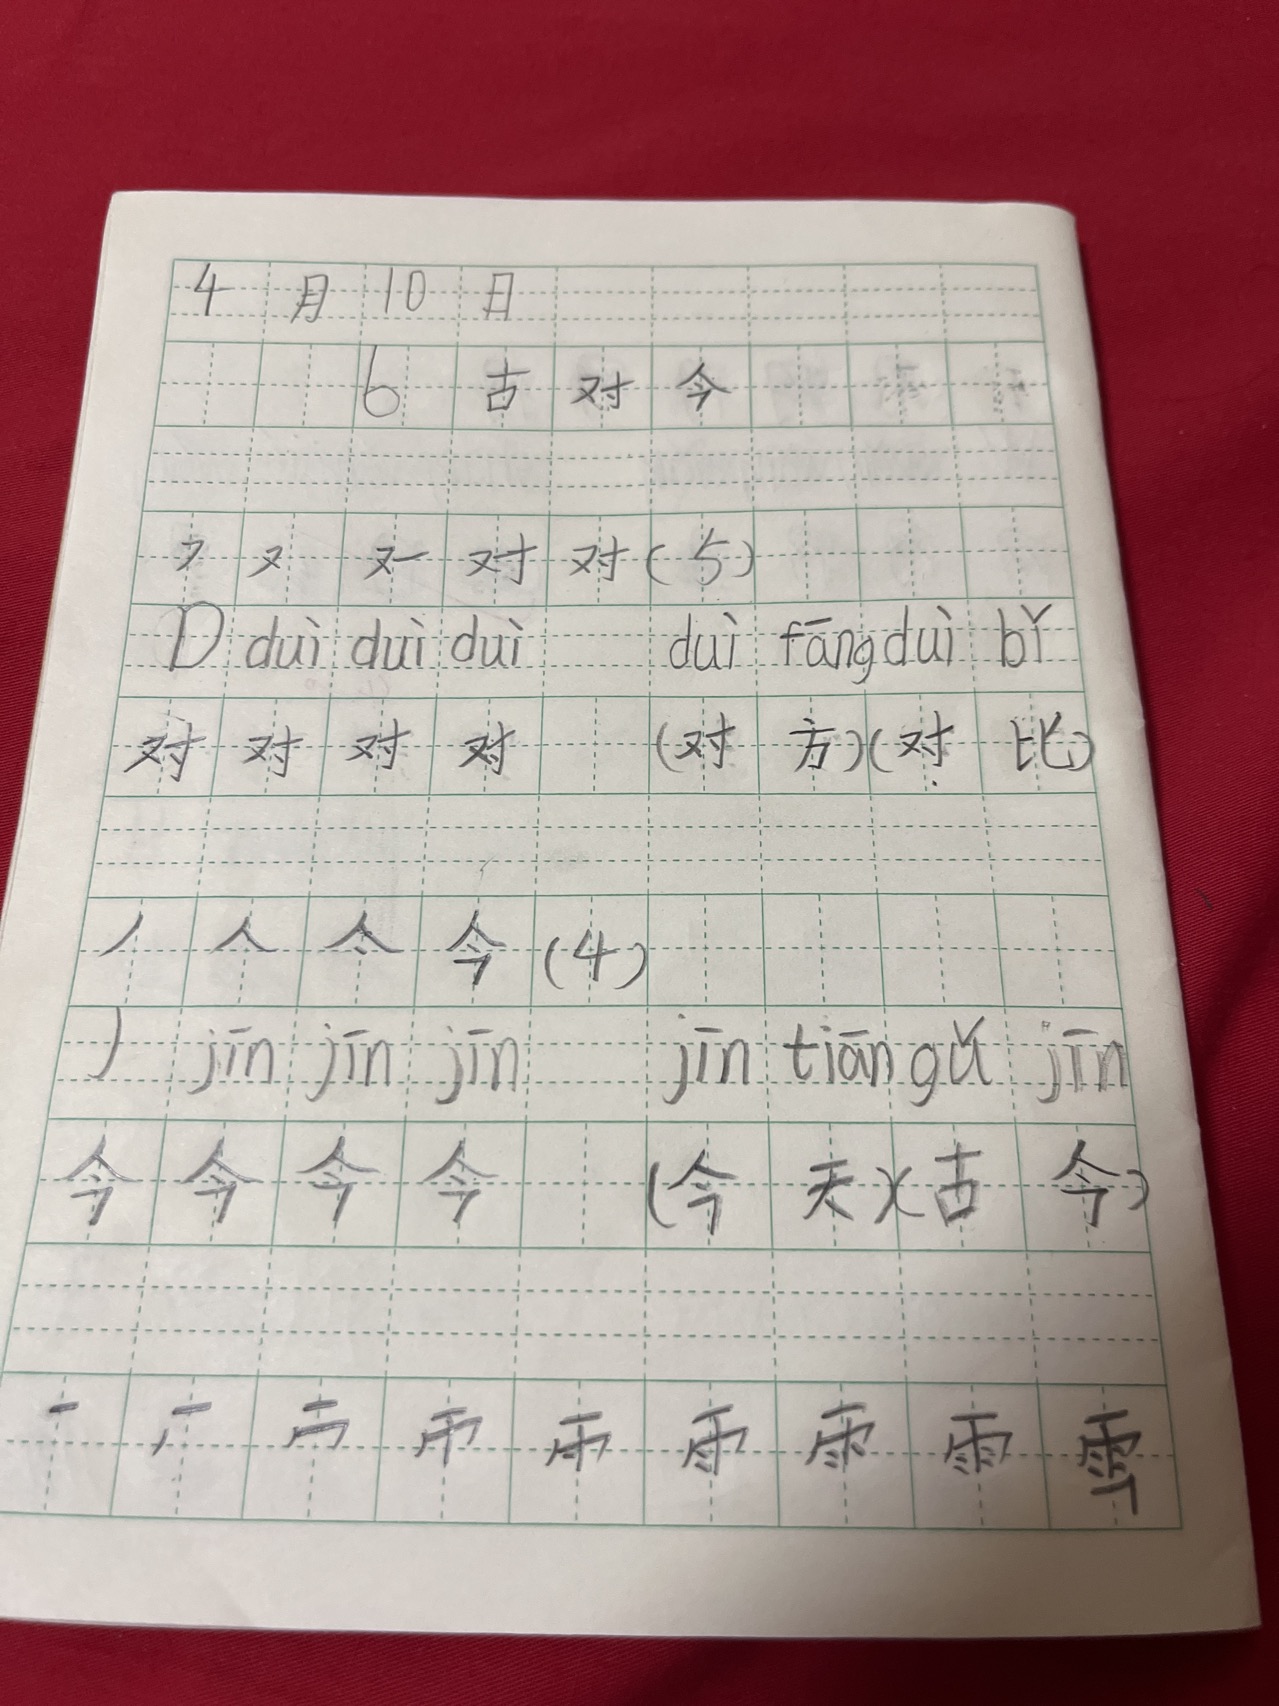 4月10日
6 古对今
㇇ 又 对 对 (5)
D duì duì duì duì fāng duì bǐ
对 对 对 对 (对方)(对比)
丿 人 亽 今 (4)
J jīn jīn jīn jīn tiān gǔ jīn
今 今 今 今 (今天)(古今)
一 雨 雪